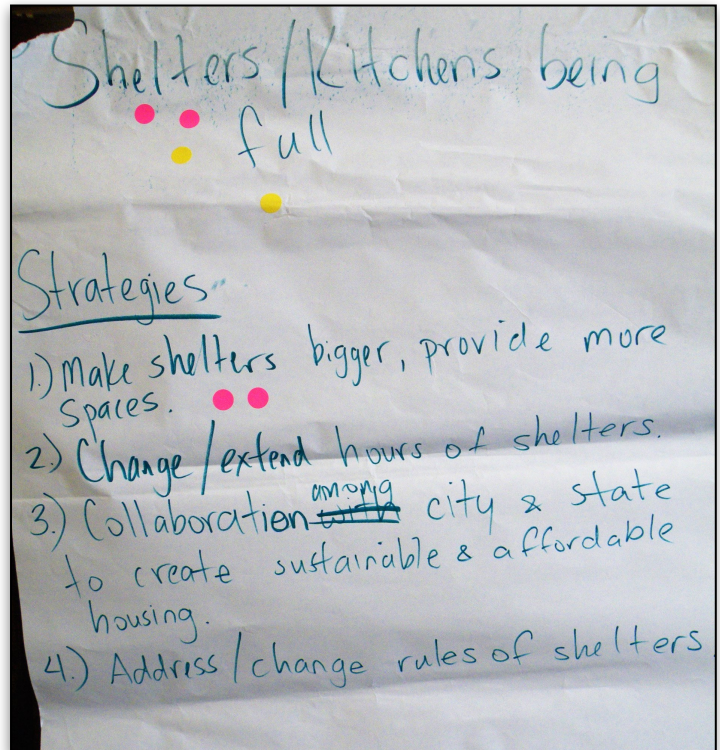 Shelters/Kitchens being
full
Strategies
1.) Make shelters bigger, provide more
spaces.
2.) Change/extend hours of shelters.
3.) Collaboration among city & state
to create sustainable & affordable
housing.
4.) Address/change rules of shelters